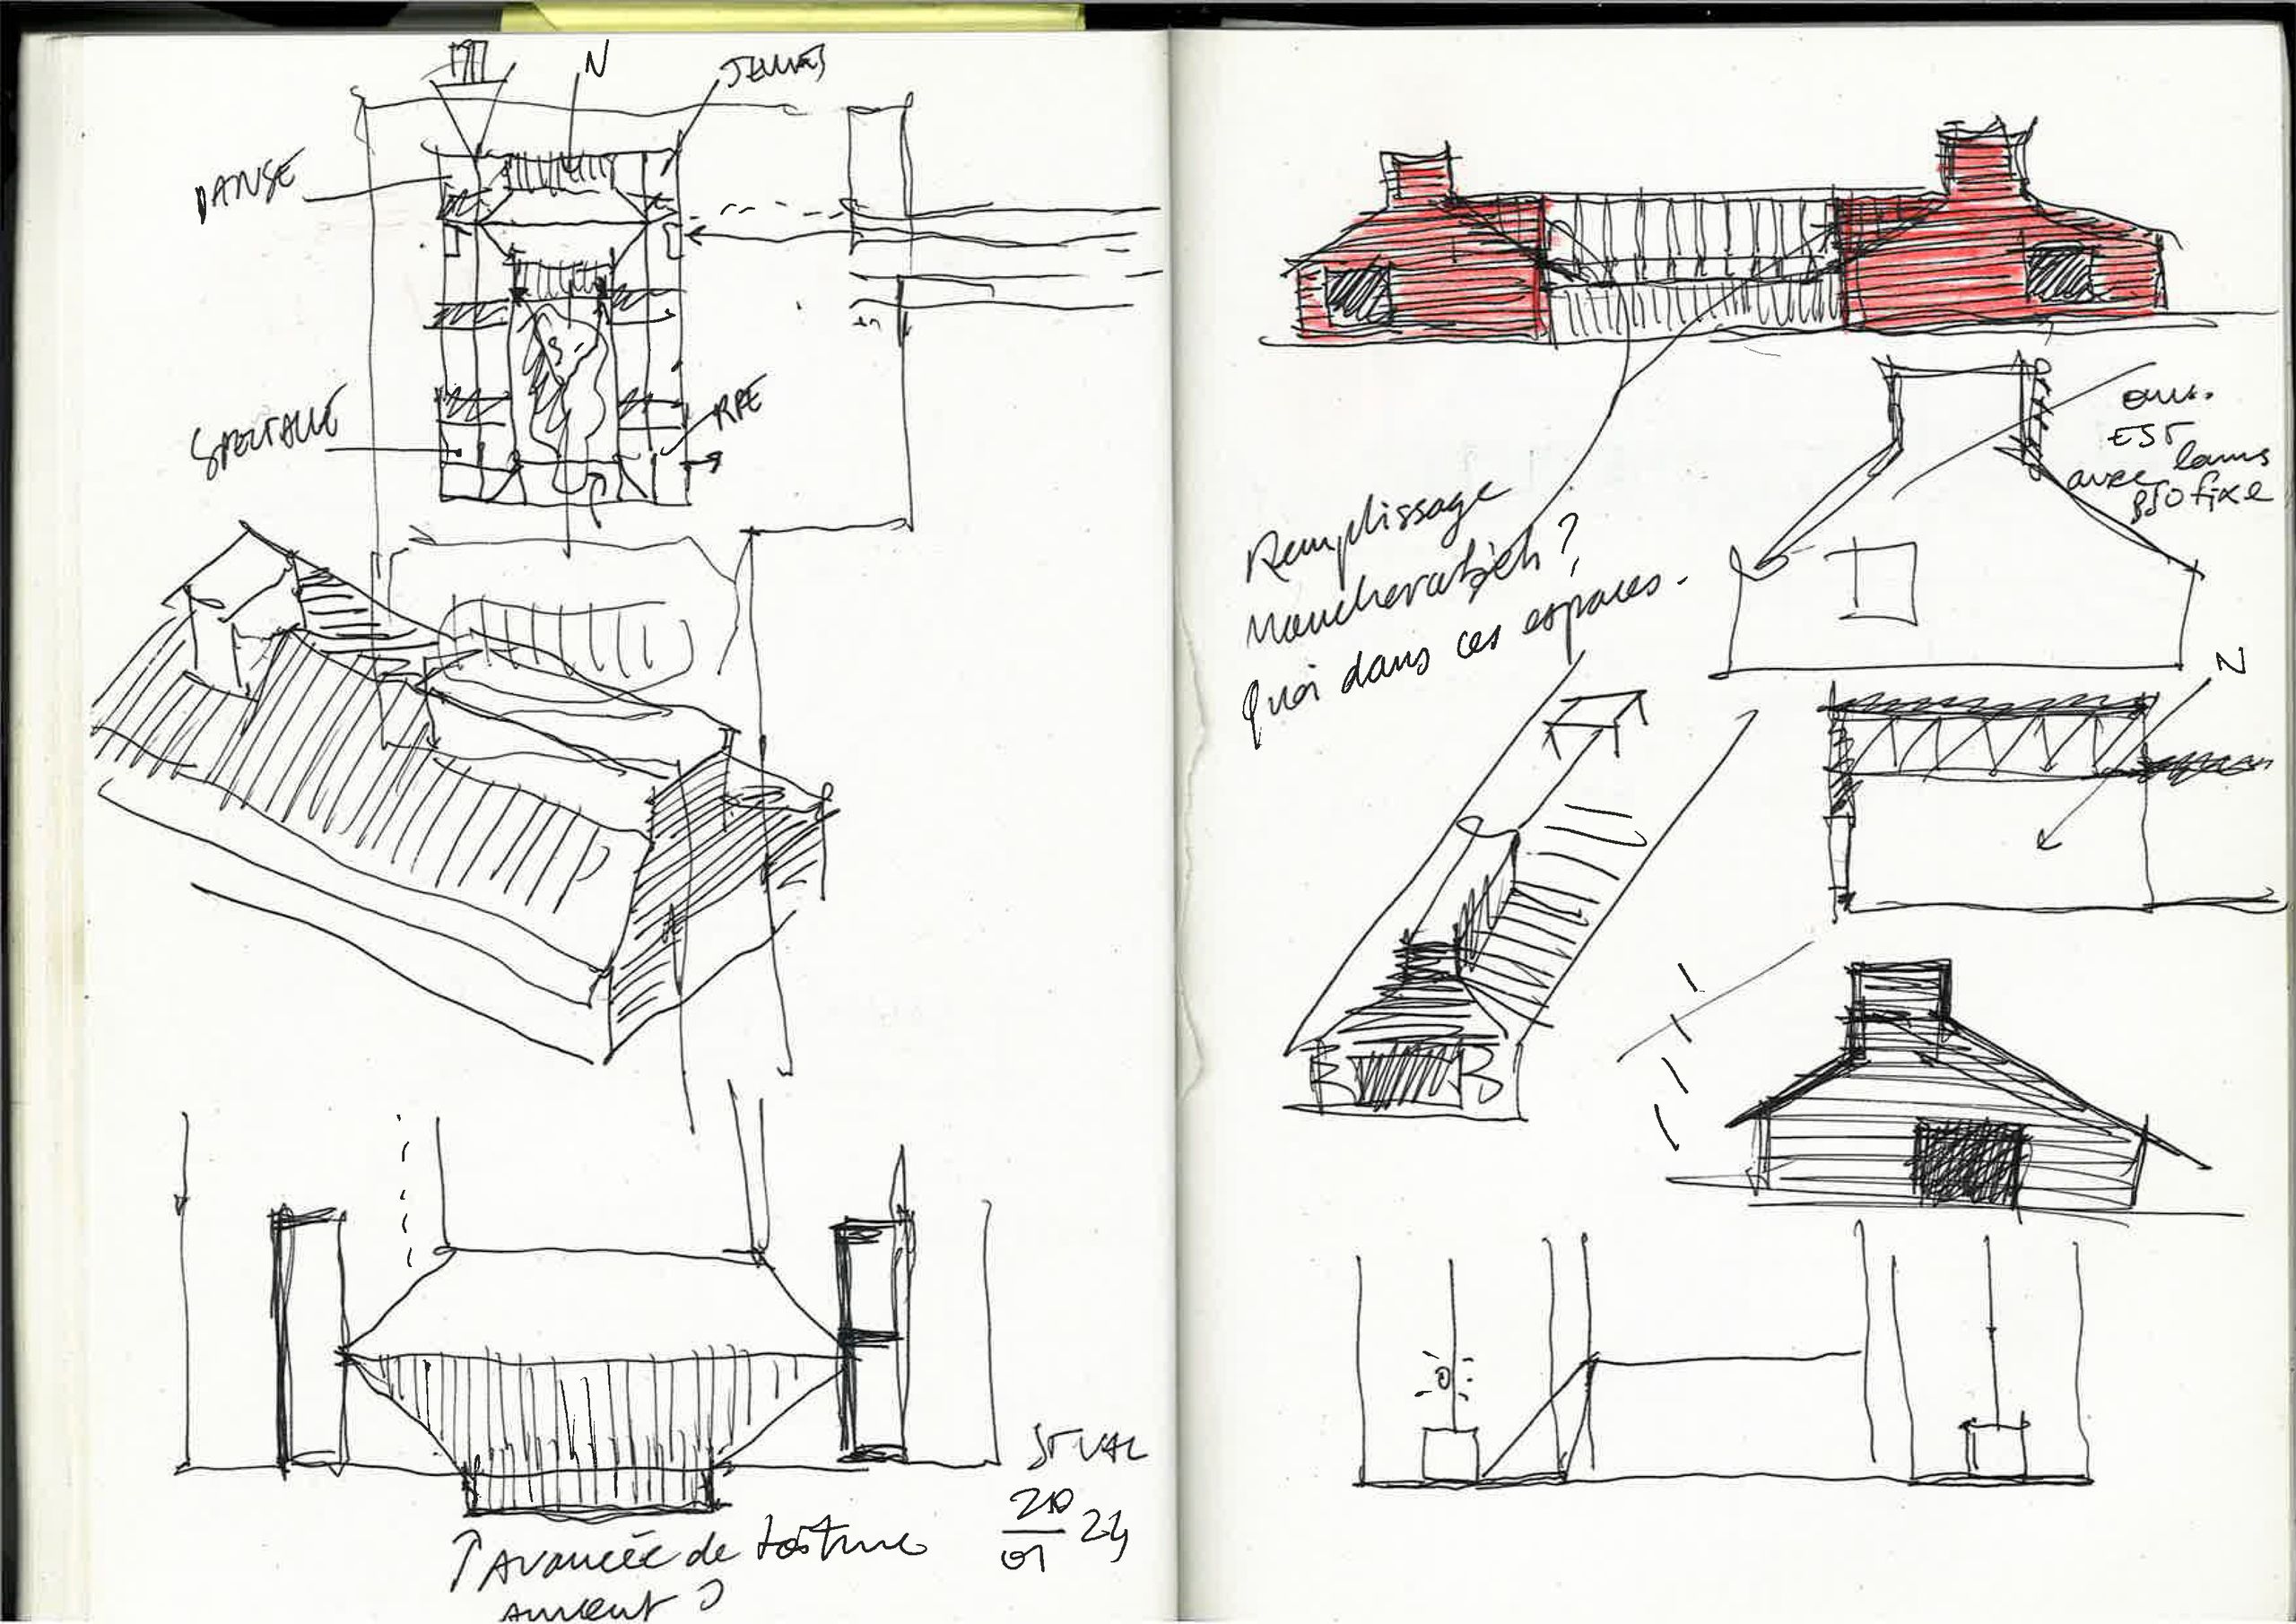 N
JEUNES
DANSE
SPECTACLE
RPE
ST VAL
20
01 24
↑ Avancée de toiture
Remplissage
Moucharabieh ?
Quoi dans ces espaces.
ouv.
EST
avec lames
BSO fixe
N